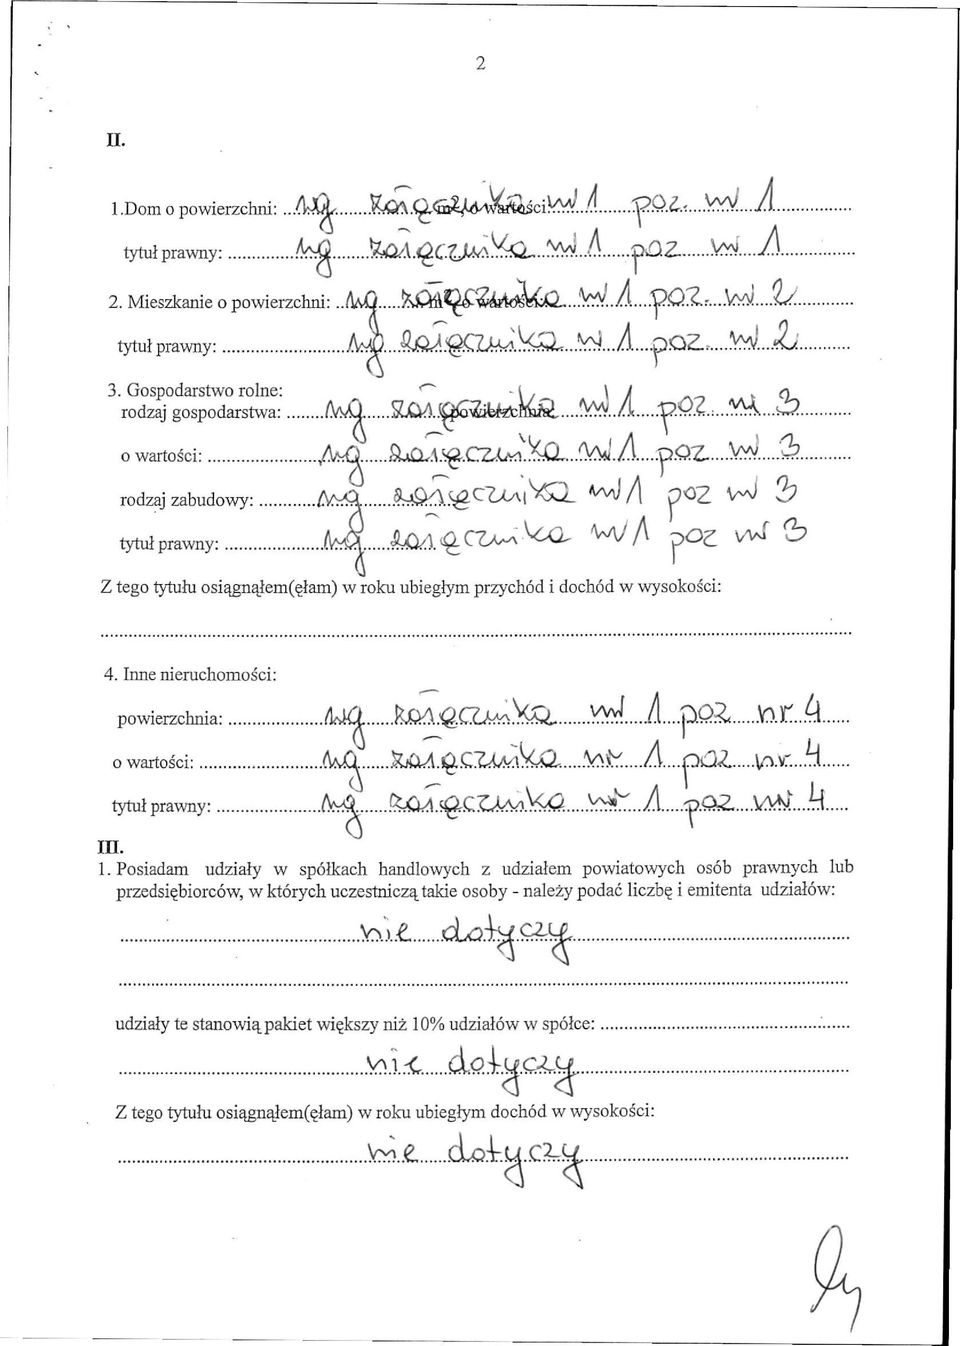 2
II.
1.Dom o powierzchni: ..wg załącznika nr 1 poz. nr 1
tytuł prawny: .............wg załącznika nr 1 poz nr 1
2. Mieszkanie o powierzchni: ..wg załącznika nr 1 poz. nr 2
tytuł prawny: ........................wg załącznika nr 1 poz. nr 2
3. Gospodarstwo rolne:
rodzaj gospodarstwa: .......wg załącznika nr 1 poz nr 3
o wartości: .....................wg załącznika nr 1 poz nr 3
rodzaj zabudowy: ...........wg załącznika nr 1 poz nr 3
tytuł prawny: ...................wg załącznika nr 1 poz nr 3
Z tego tytułu osiągnąłem(ęłam) w roku ubiegłym przychód i dochód w wysokości:
4. Inne nieruchomości:
powierzchnia: ..................wg załącznika nr 1 poz nr 4
o wartości: .......................wg załącznika nr 1 poz nr 4
tytuł prawny: ....................wg załącznika nr 1 poz nr 4
III.
1. Posiadam udziały w spółkach handlowych z udziałem powiatowych osób prawnych lub
przedsiębiorców, w których uczestniczą takie osoby - należy podać liczbę i emitenta udziałów:
nie dotyczy
udziały te stanowią pakiet większy niż 10% udziałów w spółce: ................................................
nie dotyczy
Z tego tytułu osiągnąłem(ęłam) w roku ubiegłym dochód w wysokości:
nie dotyczy